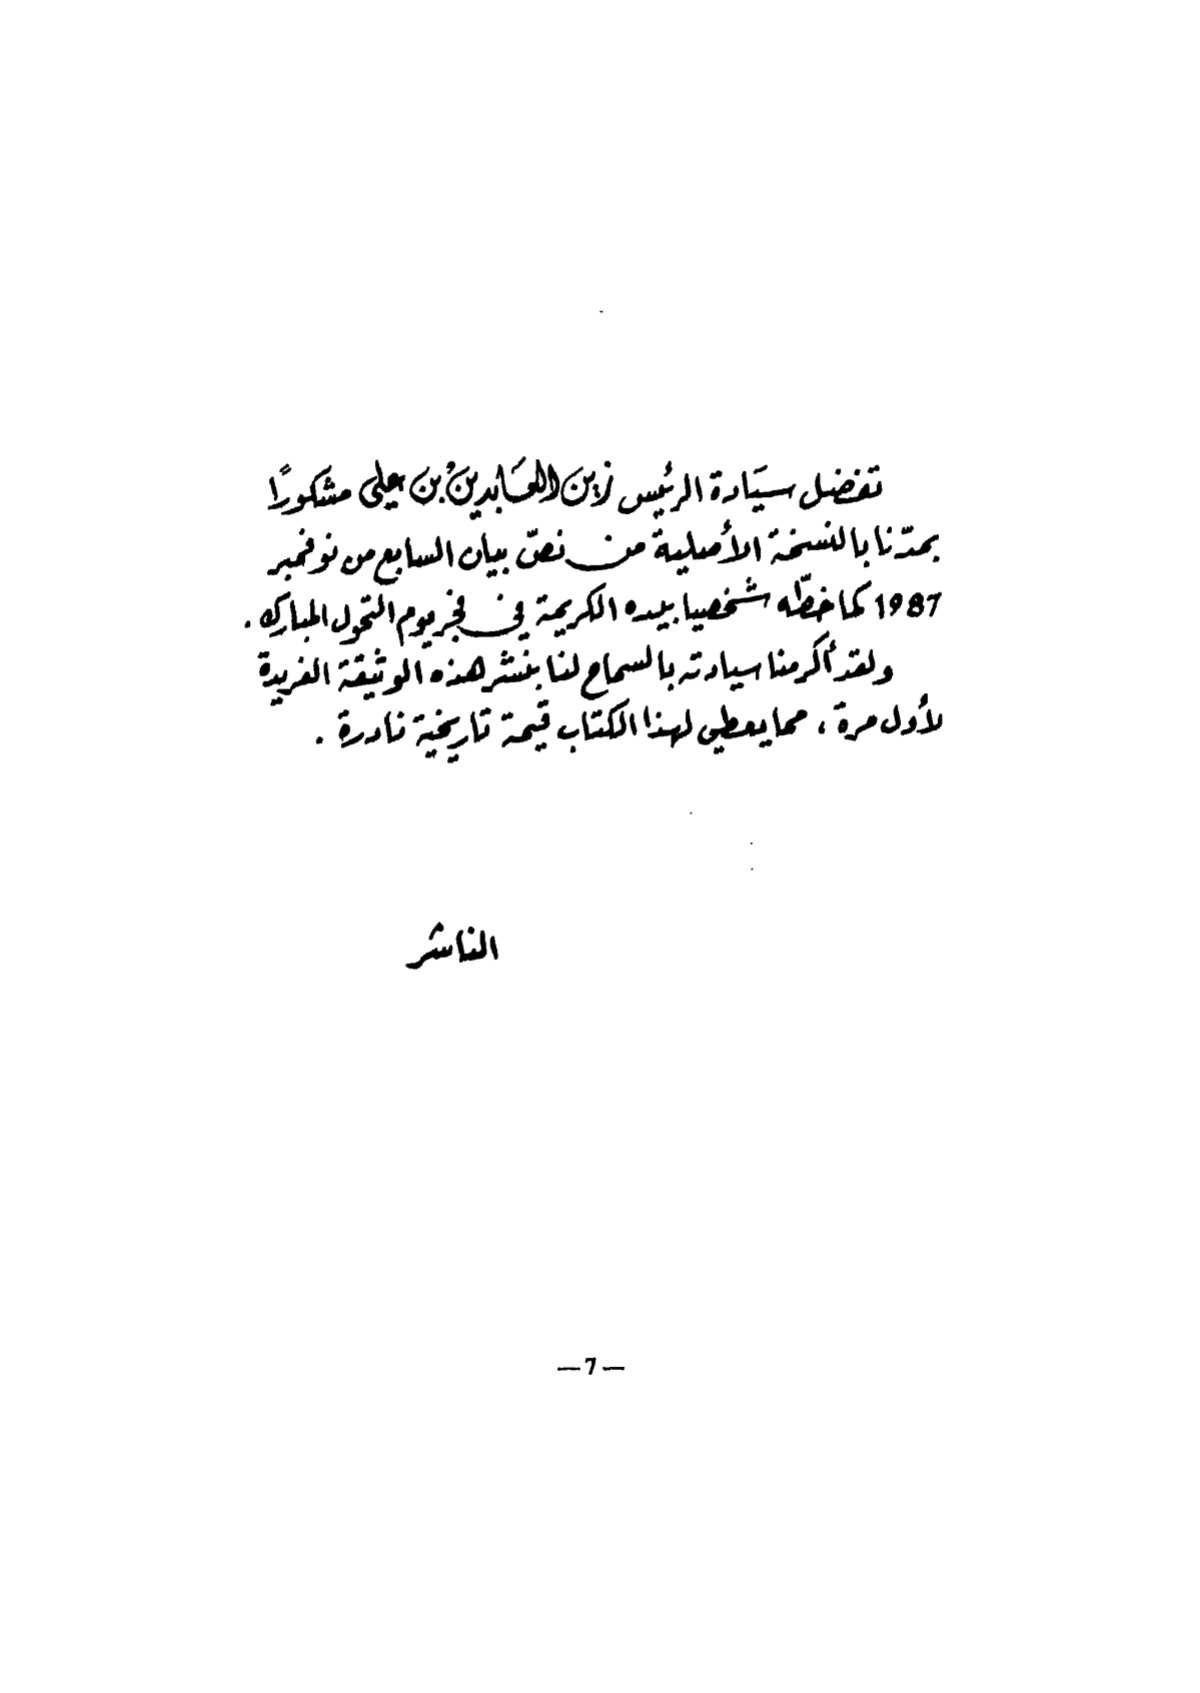 تفضل سيَادة الرئيس زين العَابدين بن علي مشكورًا
بمدّنا بالنسخة الأصلية من نصّ بيان السابع من نوفمبر
1987 كما خطّه شخصيا بيده الكريمة في فجر يوم التحول المبارك .
ولقد أكرمنا سيادته بالسماح لنا بنشر هذه الوثيقة الفريدة
لأول مرة ، مما يعطي لهذا الكتاب قيمة تاريخية نادرة .
الناشر
— 7 —